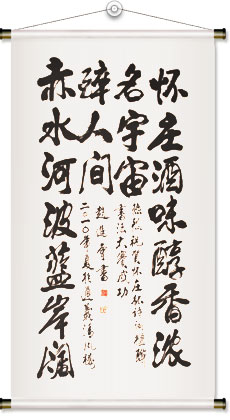 怀庄酒味醇香浓
名宇宙
醉人间
赤水河波蓝岸阔
热烈祝贺怀庄杯诗词楹联
书法大赛成功
书
二〇一〇年夏於遵义清风楼